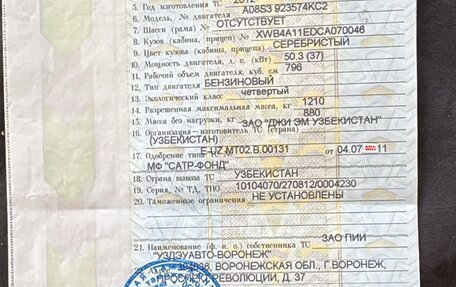 5. Год изготовления ТС 2012
6. Модель, № двигателя A08S3 923574KC2
7. Шасси (рама) № ОТСУТСТВУЕТ
8. Кузов (кабина, прицеп) № XWB4A11EDCA070046
9. Цвет кузова (кабины, прицепа) СЕРЕБРИСТЫЙ
10. Мощность двигателя, л. с. (кВт) 50.3 (37)
11. Рабочий объем двигателя, куб. см 796
12. Тип двигателя БЕНЗИНОВЫЙ
13. Экологический класс четвертый
14. Разрешенная максимальная масса, кг 1210
15. Масса без нагрузки, кг 880
16. Организация—изготовитель ТС (страна) ЗАО "ДЖИ ЭМ УЗБЕКИСТАН"
(УЗБЕКИСТАН)
17. Одобрение типа E-UZ.MT02.B.00131 от 04.07 11
МФ "САТР-ФОНД"
18. Страна вывоза ТС УЗБЕКИСТАН
19. Серия, № ТД, ТПО 10104070/270812/0004230
20. Таможенные ограничения НЕ УСТАНОВЛЕНЫ
21. Наименование (ф. и. о.) собственника ТС ЗАО ПИИ
"УЗДЭУАВТО-ВОРОНЕЖ"
ВОРОНЕЖСКАЯ ОБЛ., Г.ВОРОНЕЖ,
РЕВОЛЮЦИИ, Д. 37